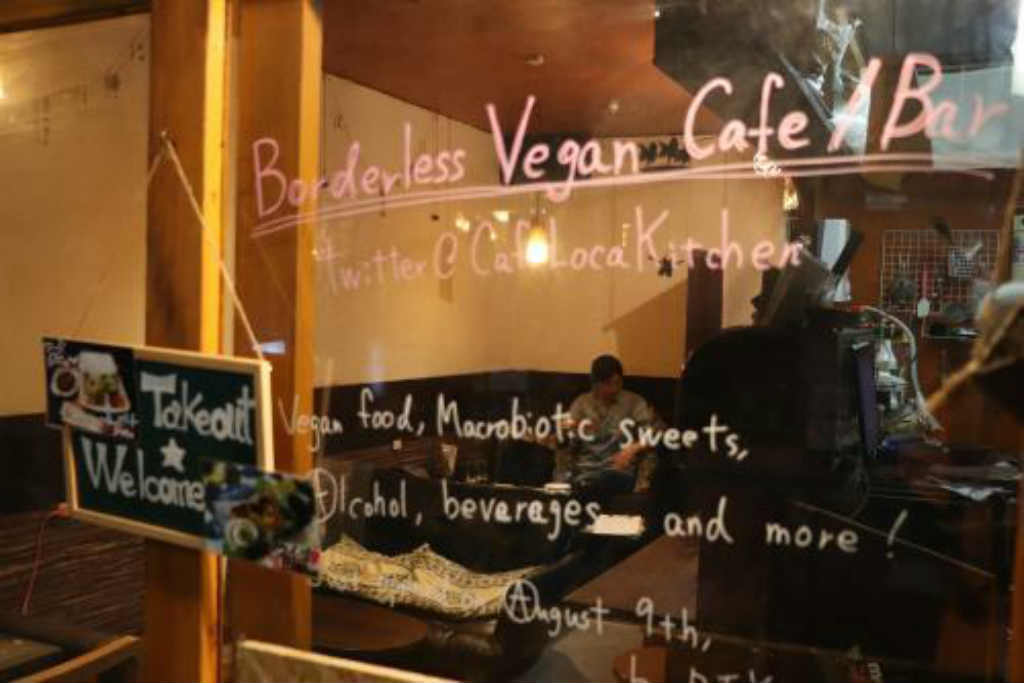 Borderless Vegan Cafe / Bar
twitter @CafeLocaKitchen
Takeout
★
Welcome
Vegan food, Macrobiotic sweets,
Alcohol, beverages and more!
August 9th,
by DIY